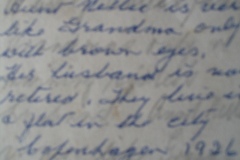 Aunt Nellie is very
like Grandma only
with brown eyes.
Her husband is now
retired. They live in
a flat in the city
Copenhagen 1926